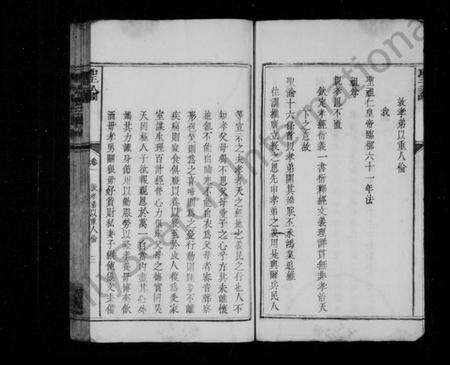 聖諭
敦孝弟以重人倫
我
聖祖仁皇帝臨御六十一年法
祖尊
親孝思不匱
欽定孝經衍義一書衍釋經文義理詳貫無非孝治天
下之意故
聖諭十六條首以孝弟開其端朕丕承鴻業追維
往訓推廣立教之思先申孝弟之義用是與爾兵民人
等宣示之夫孝者天之經地之義民之行也人不
知孝父母獨不思父母愛子之心乎方其未離懷
抱飢不能自哺寒不能自衣為父母者審音聲察
形色笑則為之喜啼則為之憂行動則跬步不離
疾痛則寢食俱廢以養以教至於成人復為授家
室謀生理百計經營心力俱瘁父母之德實同昊
天罔極人子欲報親恩於萬一自當內盡其心外
竭其力謹身節用以勤服勞以隆孝養毋博弈飲
酒毋好勇鬬狠毋好貨財私妻子縱使儀文未備
聖諭
卷一
敦孝弟以重人倫